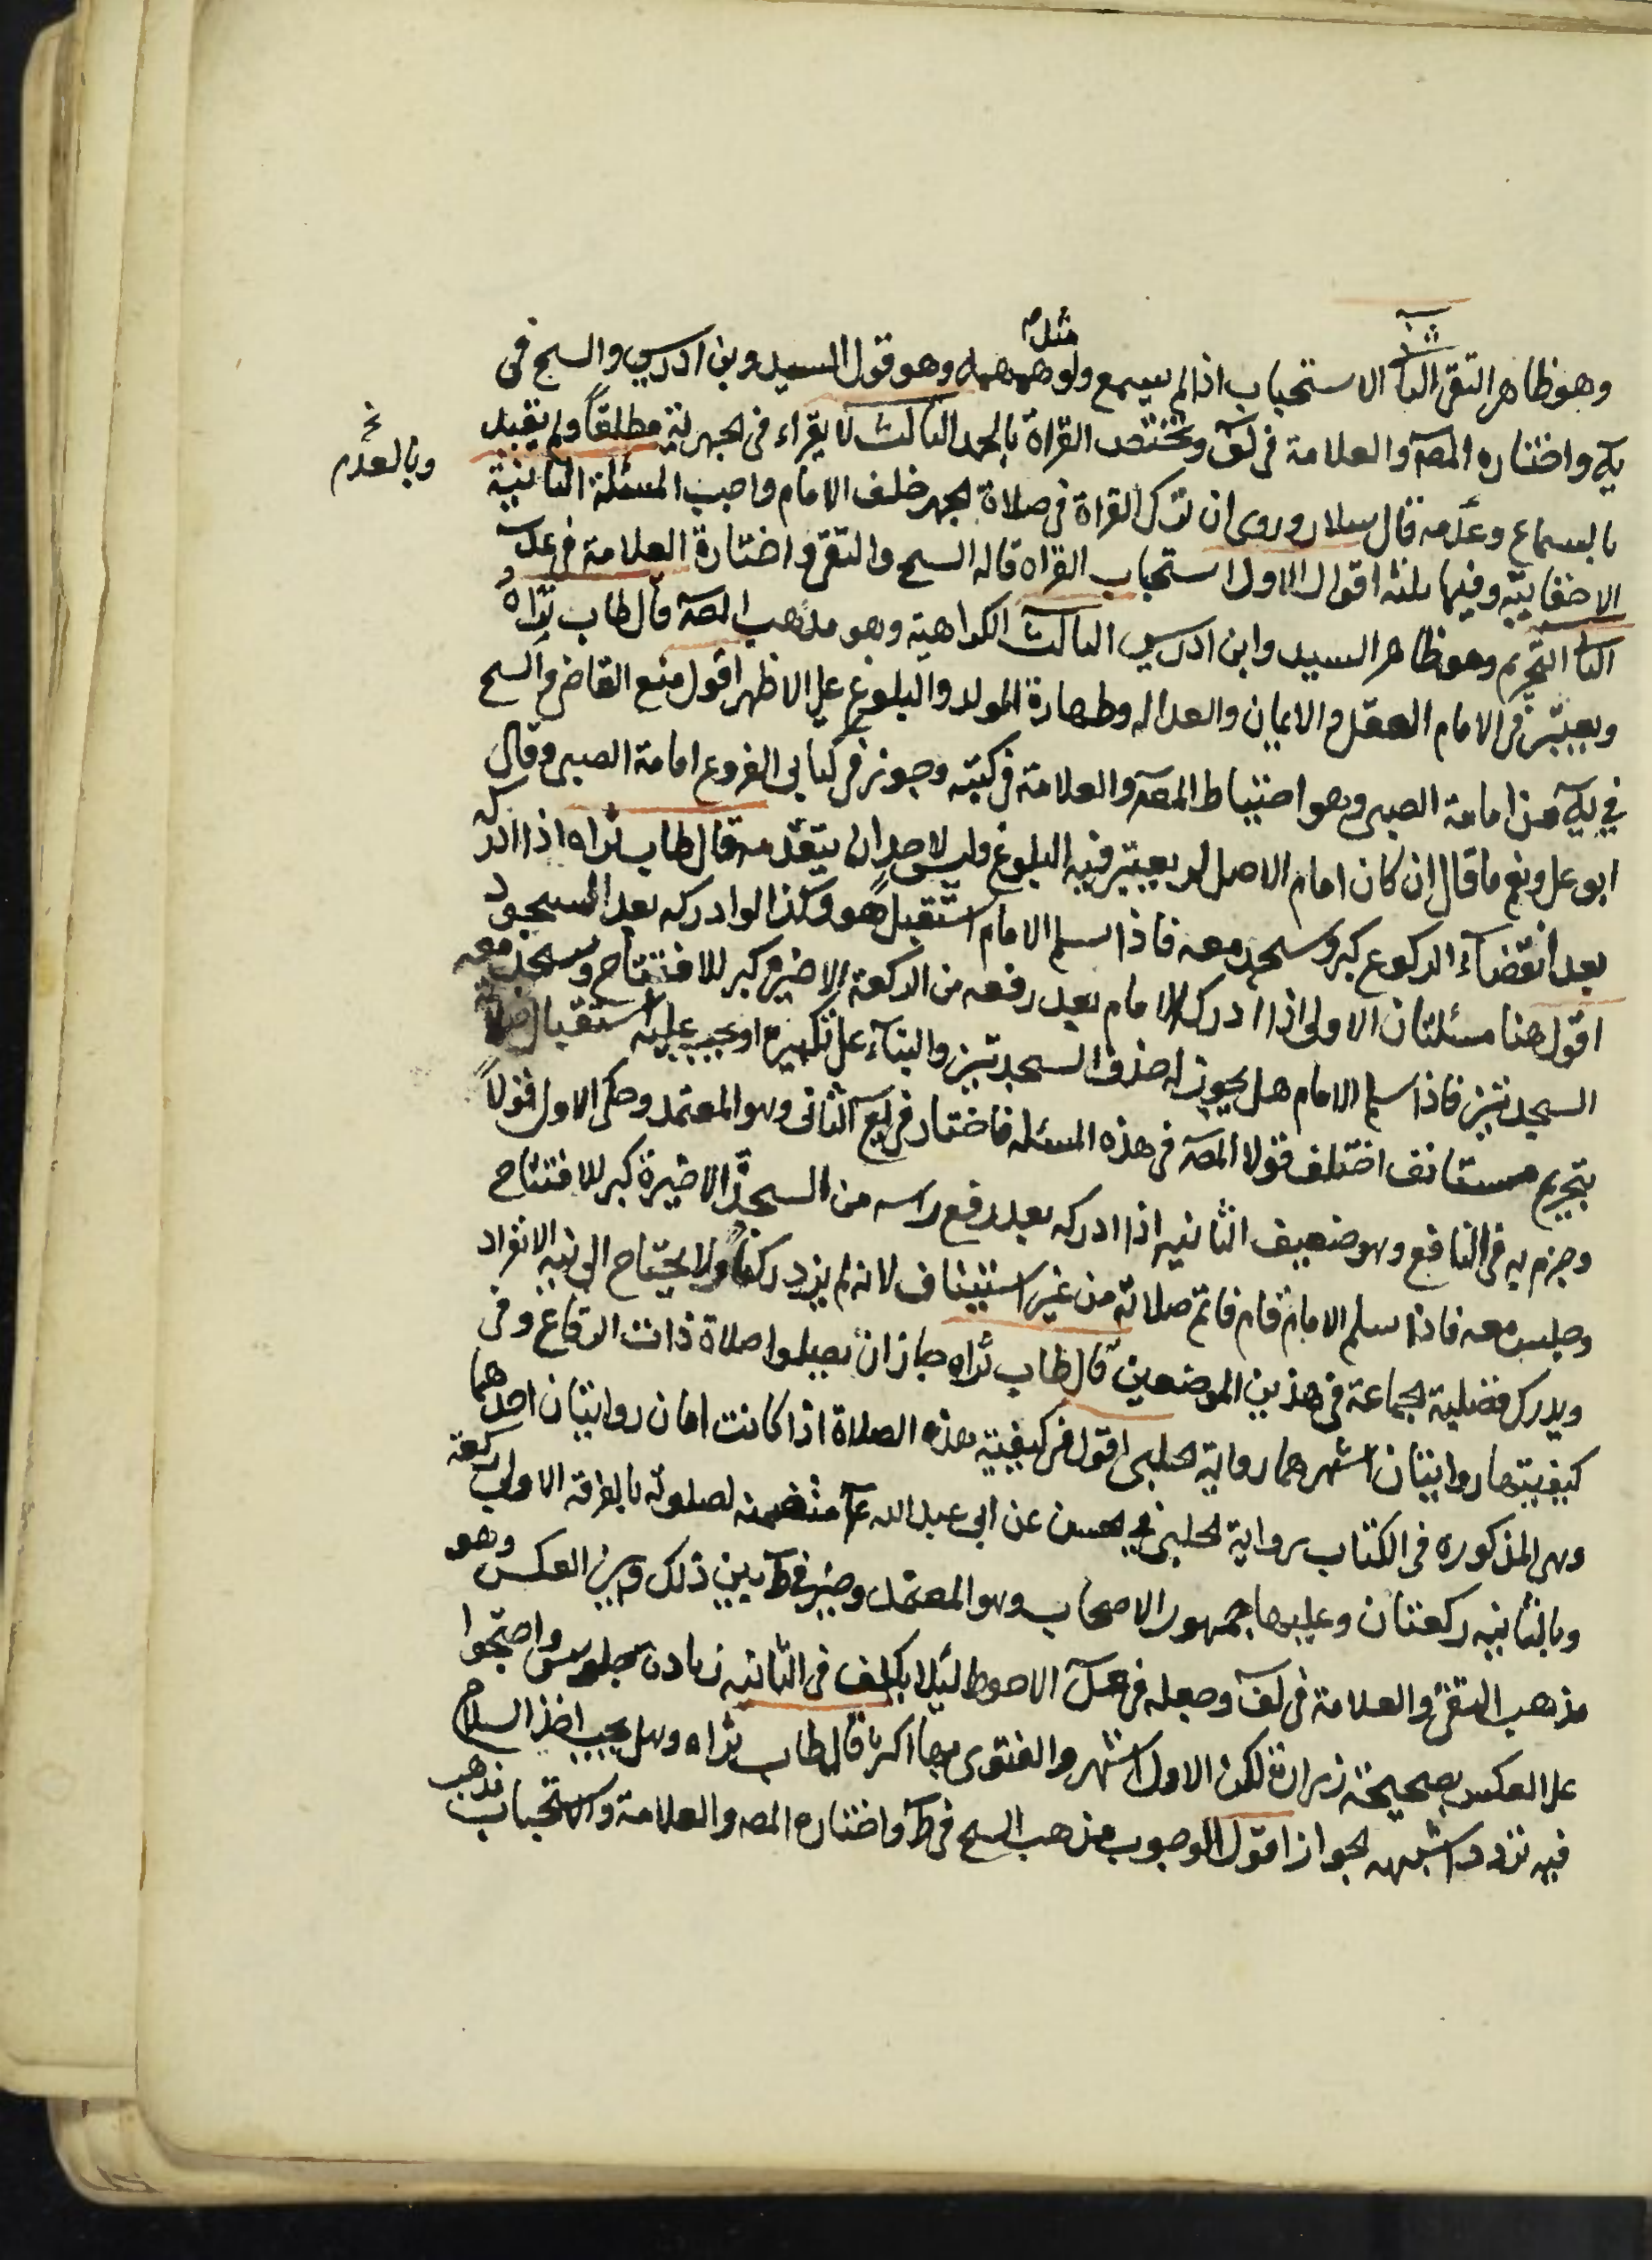 وهو ظاهر التقى الثا الاستحباب اذا لم يسمع ولو مثل همهمه وهو قول السيد وبن ادريس والسح في
يه واختاره المصه والعلامة في لف وتختص القراة بالحمد الثالث لا يقراء في الجهرية مطلقاً ولم يقيد
وبالعدم
بالسماع وعدمه قال سلار وروى ان ترك القراة في صلاة الجهر خلف الامام واجب المسئلة الثانية
الاخفاتية وفيها ثلثه اقوال الاول استحباب القراه قاله السح والتقى واختارة العلامة في عد
الثا التحريم وهو ظاهر السيد وابن ادريس الثالث الكراهية وهو مذهب المصه قال طاب ثراه
ويعتبر في الامام العقل والايمان والعداله وطهارة المولد والبلوغ على الاظهر اقول منع القاضى والسح
في يه من امامة الصبى وهو احتياط المصه والعلامة في كتبه وجوز في كتابى الفروع امامة الصبى وقال
ابو على ونعم ما قال ان كان امام الاصل لم يعتبر فيه البلوغ وليس لاحد ان يتقدمه قال طاب ثراه اذا ادركه
بعد انقضآء الركوع كبر وسجد معه فاذا سلم الامام استقبل هو وكذا لو ادركه بعد السجود
اقول هنا مسئلتان الاولى اذا ادرك الامام بعد رفعه من الركعة الاخيره كبر للافتتاح وسجد معه
السجدتين فاذا سلم الامام هل يجوز له حذف السجدتين والبنآء على تكبيره او يجب عليه استقبال صلاته
بتحريم مستانف اختلف قولا المصه في هذه المسئله فاختار في يع الثانى وهو المعتمد وحكى الاول قولاً
وجزم به في النافع وهو ضعيف الثانيه اذا ادركه بعد رفع راسه من السجدة الاخيرة كبر للافتتاح
وجلس معه فاذا سلم الامام قام فاتم صلاته من غير استيناف لانه لم يزد ركناً ولا يحتاج الى نية الانفراد
ويدرك فضلية الجماعة في هذين الموضعين قال طاب ثراه جاز ان يصلوا صلاة ذات الرقاع وفي
كيفيتها روايتان اشهرهما رواية الحلبى اقول في كيفية هذه الصلاة اذا كانت امان روايتان احدهما
وهى المذكوره في الكتاب برواية الحلبى في الحسن عن ابى عبد الله عآ متضمنه لصلوته بالفرقه الاولى ركعة
وبالثانيه ركعتان وعليها جمهور الاصحاب وهو المعتمد وخير في ط بين ذلك وبين العكس وهو
مذهب التقى والعلامة في لف وجعله في عد الاحوط لئلا يكلف في الثانيه زيادة جلوس واحتجوا
على العكس بصحيحة زرارة لكن الاول اشهر والفتوى بها اكثر قال طاب ثراه وهل يجب اخذ السلاح
فيه تردد اشبهه الجواز اقول الوجوب مذهب السح في ط واختاره المصه والعلامة والاستحباب مذهب